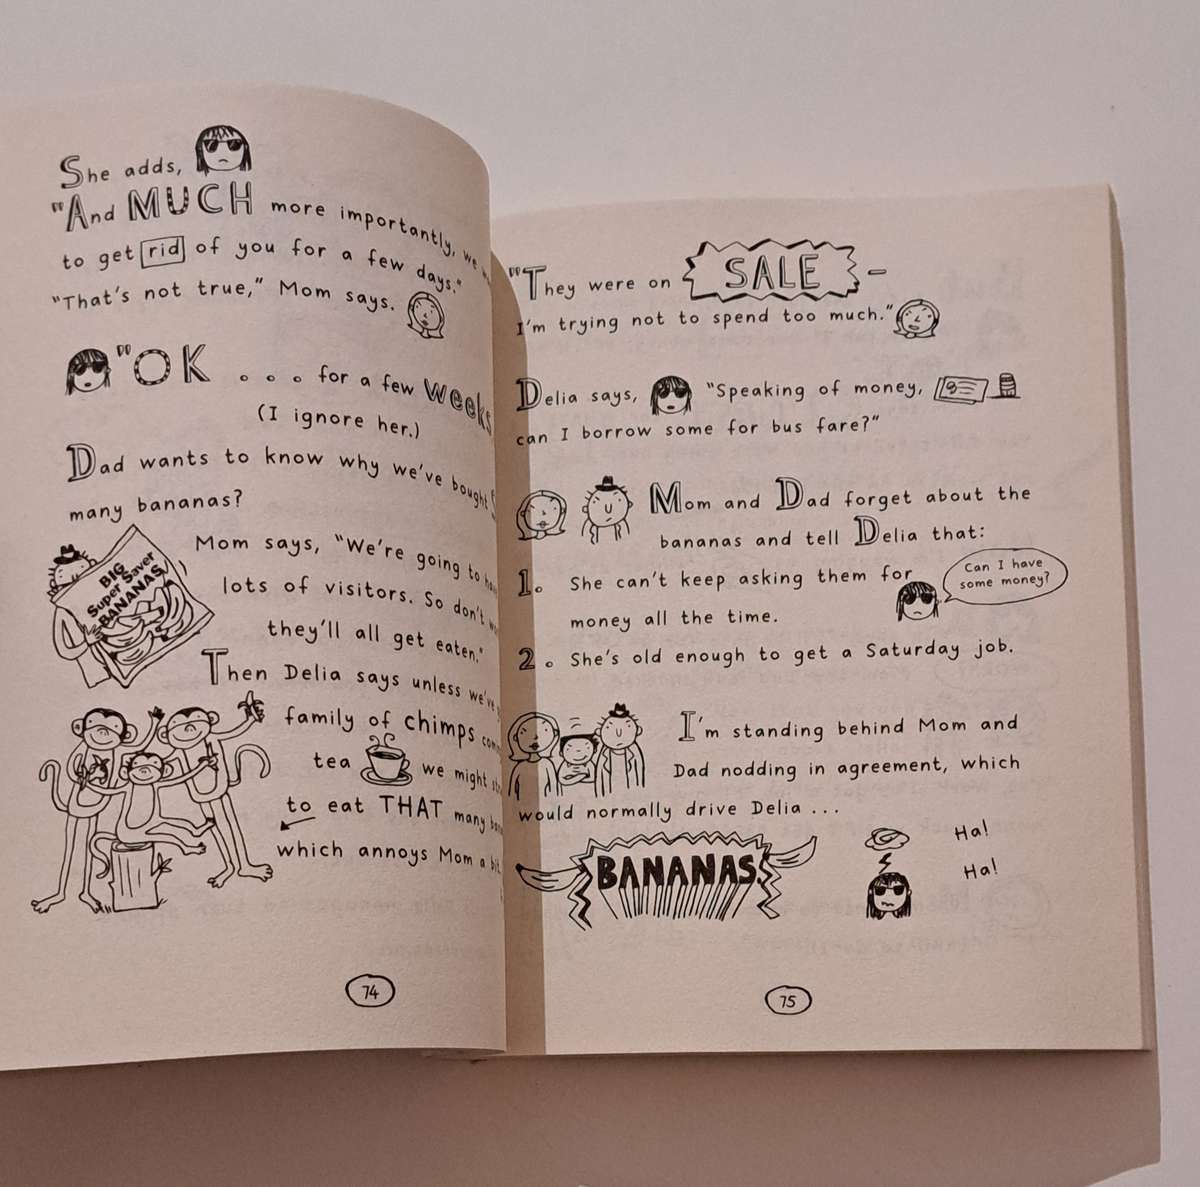 She adds,
"And MUCH more importantly, we
to get rid of you for a few days."
"That's not true," Mom says.
"OK . . . for a few weeks
(I ignore her.)
Dad wants to know why we've bought
many bananas?
BIG
Super Saver
BANANAS
Mom says, "We're going to
lots of visitors. So don't
they'll all get eaten."
Then Delia says unless we've
family of chimps
tea we might
to eat THAT many
which annoys Mom a bit.
74
"They were on SALE –
I'm trying not to spend too much."
Delia says, "Speaking of money,
can I borrow some for bus fare?"
Mom and Dad forget about the
bananas and tell Delia that:
1. She can't keep asking them for
money all the time.
Can I have
some money?
2. She's old enough to get a Saturday job.
I'm standing behind Mom and
Dad nodding in agreement, which
would normally drive Delia ...
BANANAS.
Ha!
Ha!
75